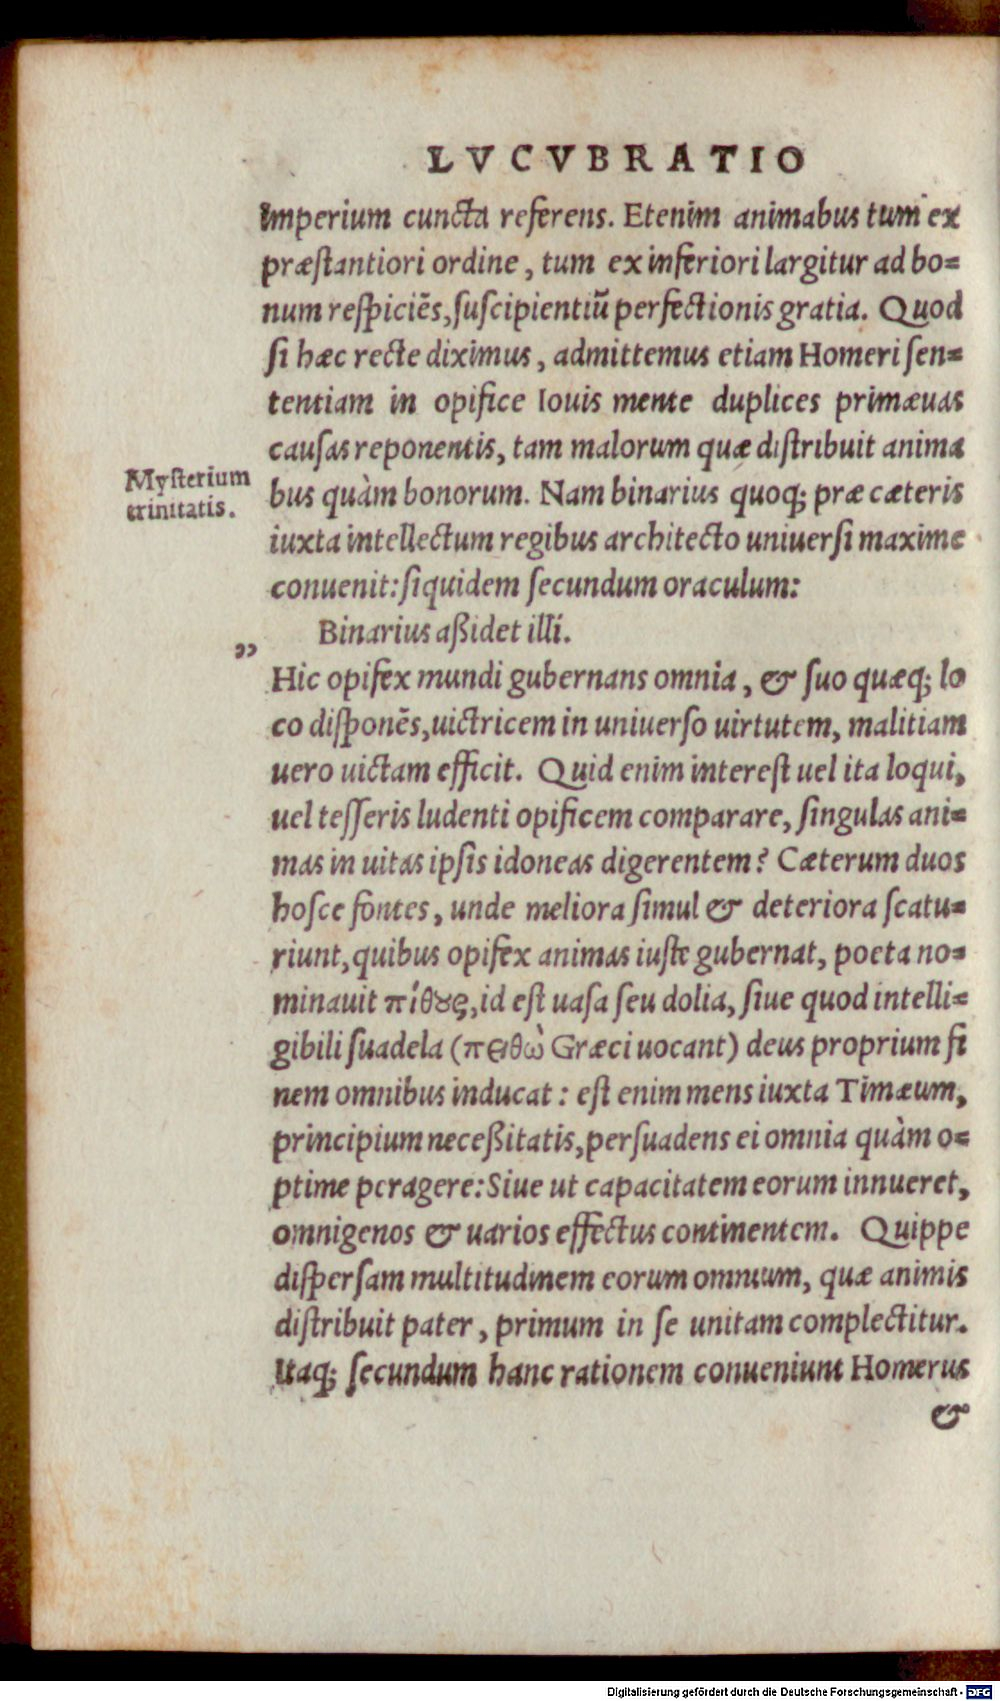 LVCVBRATIO
Imperium cuncta referens. Etenim animabus tum ex
præſtantiori ordine, tum ex inferiori largitur ad bo=
num reſpiciēs, ſuſcipientiū perfectionis gratia. Quod
ſi hæc recte diximus, admittemus etiam Homeri ſen=
tentiam in opifice Iouis mente duplices primæuas
cauſas reponentis, tam malorum quæ diſtribuit anima
Myſterium
trinitatis.
bus quàm bonorum. Nam binarius quoq; præ cæteris
iuxta intellectum regibus architecto uniuerſi maxime
conuenit: ſiquidem ſecundum oraculum:
Binarius aßidet illi.
„
Hic opifex mundi gubernans omnia, & ſuo quæq; lo
co diſponēs, uictricem in uniuerſo uirtutem, malitiam
uero uictam efficit. Quid enim intereſt uel ita loqui,
uel teſſeris ludenti opificem comparare, ſingulas ani=
mas in uitas ipſis idoneas digerentem? Cæterum duos
hoſce fontes, unde meliora ſimul & deteriora ſcatu=
riunt, quibus opifex animas iuſte gubernat, poeta no=
minauit πίθȣς, id eſt uaſa ſeu dolia, ſiue quod intelli=
gibili ſuadela (πειθὼ Græci uocant) deus proprium fi
nem omnibus inducat: eſt enim mens iuxta Timæum,
principium neceßitatis, perſuadens ei omnia quàm o=
ptime peragere: Siue ut capacitatem eorum innueret,
omnigenos & uarios effectus continentem. Quippe
diſperſam multitudinem eorum omnium, quæ animis
diſtribuit pater, primum in ſe unitam complectitur.
Itaq; ſecundum hanc rationem conueniunt Homerus
&
Digitalisierung gefördert durch die Deutsche Forschungsgemeinschaft - DFG